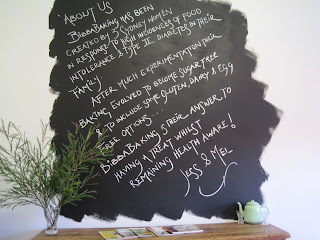 ABOUT US
BIBBABAKING HAS BEEN
CREATED BY 2 SYDNEY WOMEN
IN RESPONSE TO HIGH INCIDENCES OF FOOD
INTOLERANCE & TYPE II DIABETES IN THEIR
FAMILY
AFTER MUCH EXPERIMENTATION THEIR
BAKING EVOLVED TO BECOME SUGAR FREE
& TO INCLUDE SOME GLUTEN, DAIRY & EGG
FREE OPTIONS...
BIBBABAKING IS THEIR ANSWER TO
HAVING A TREAT WHILST
REMAINING HEALTH AWARE!
JESS & MEL